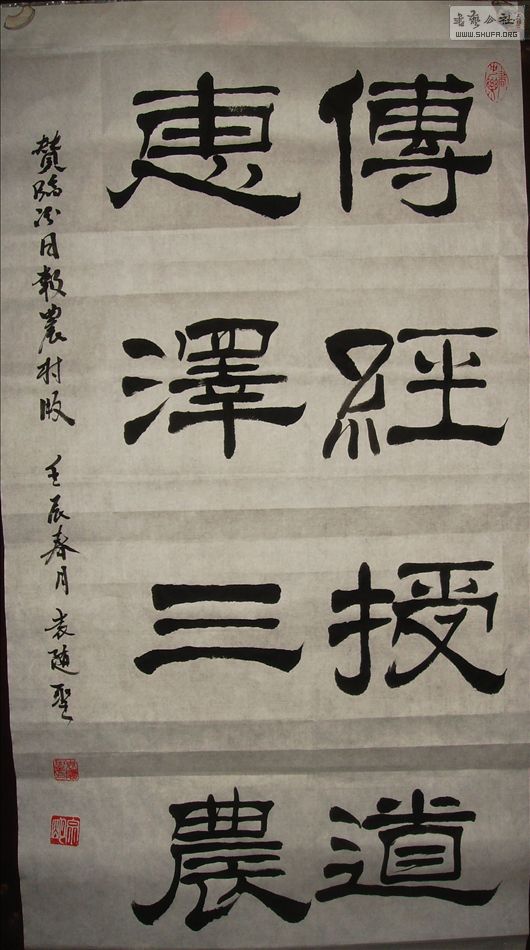 傳經授道
惠澤三農
贊臨汾日報農村版 壬辰春月 袁随聖
书艺公社
WWW.SHUFA.ORG